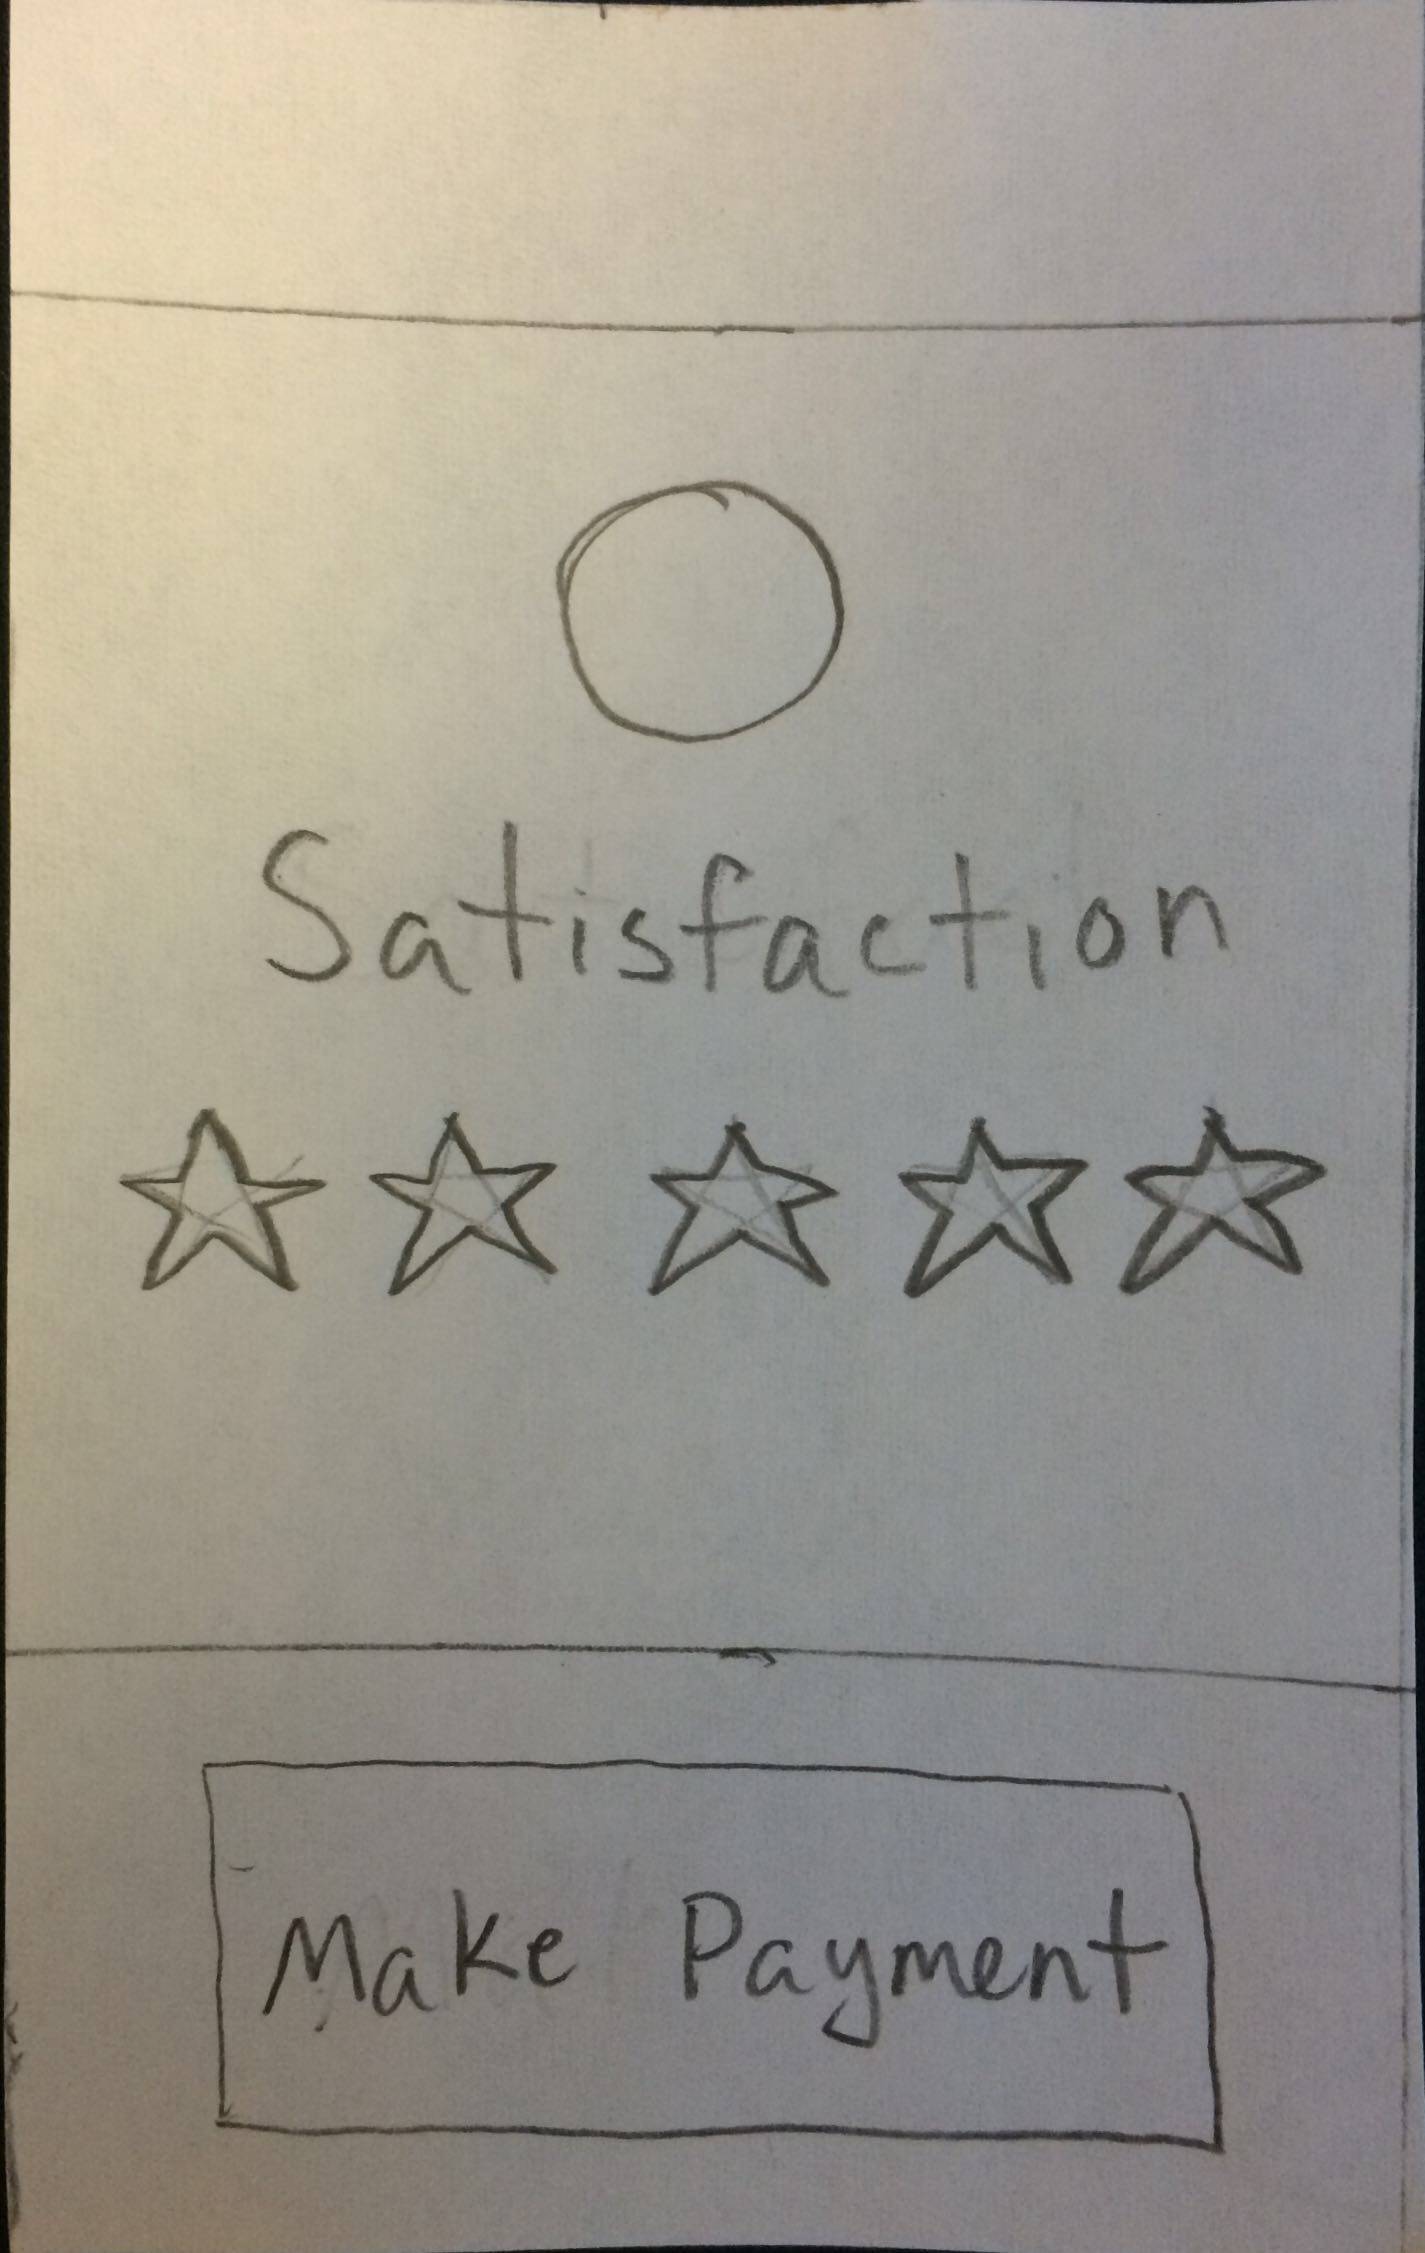 Satisfaction
Make Payment